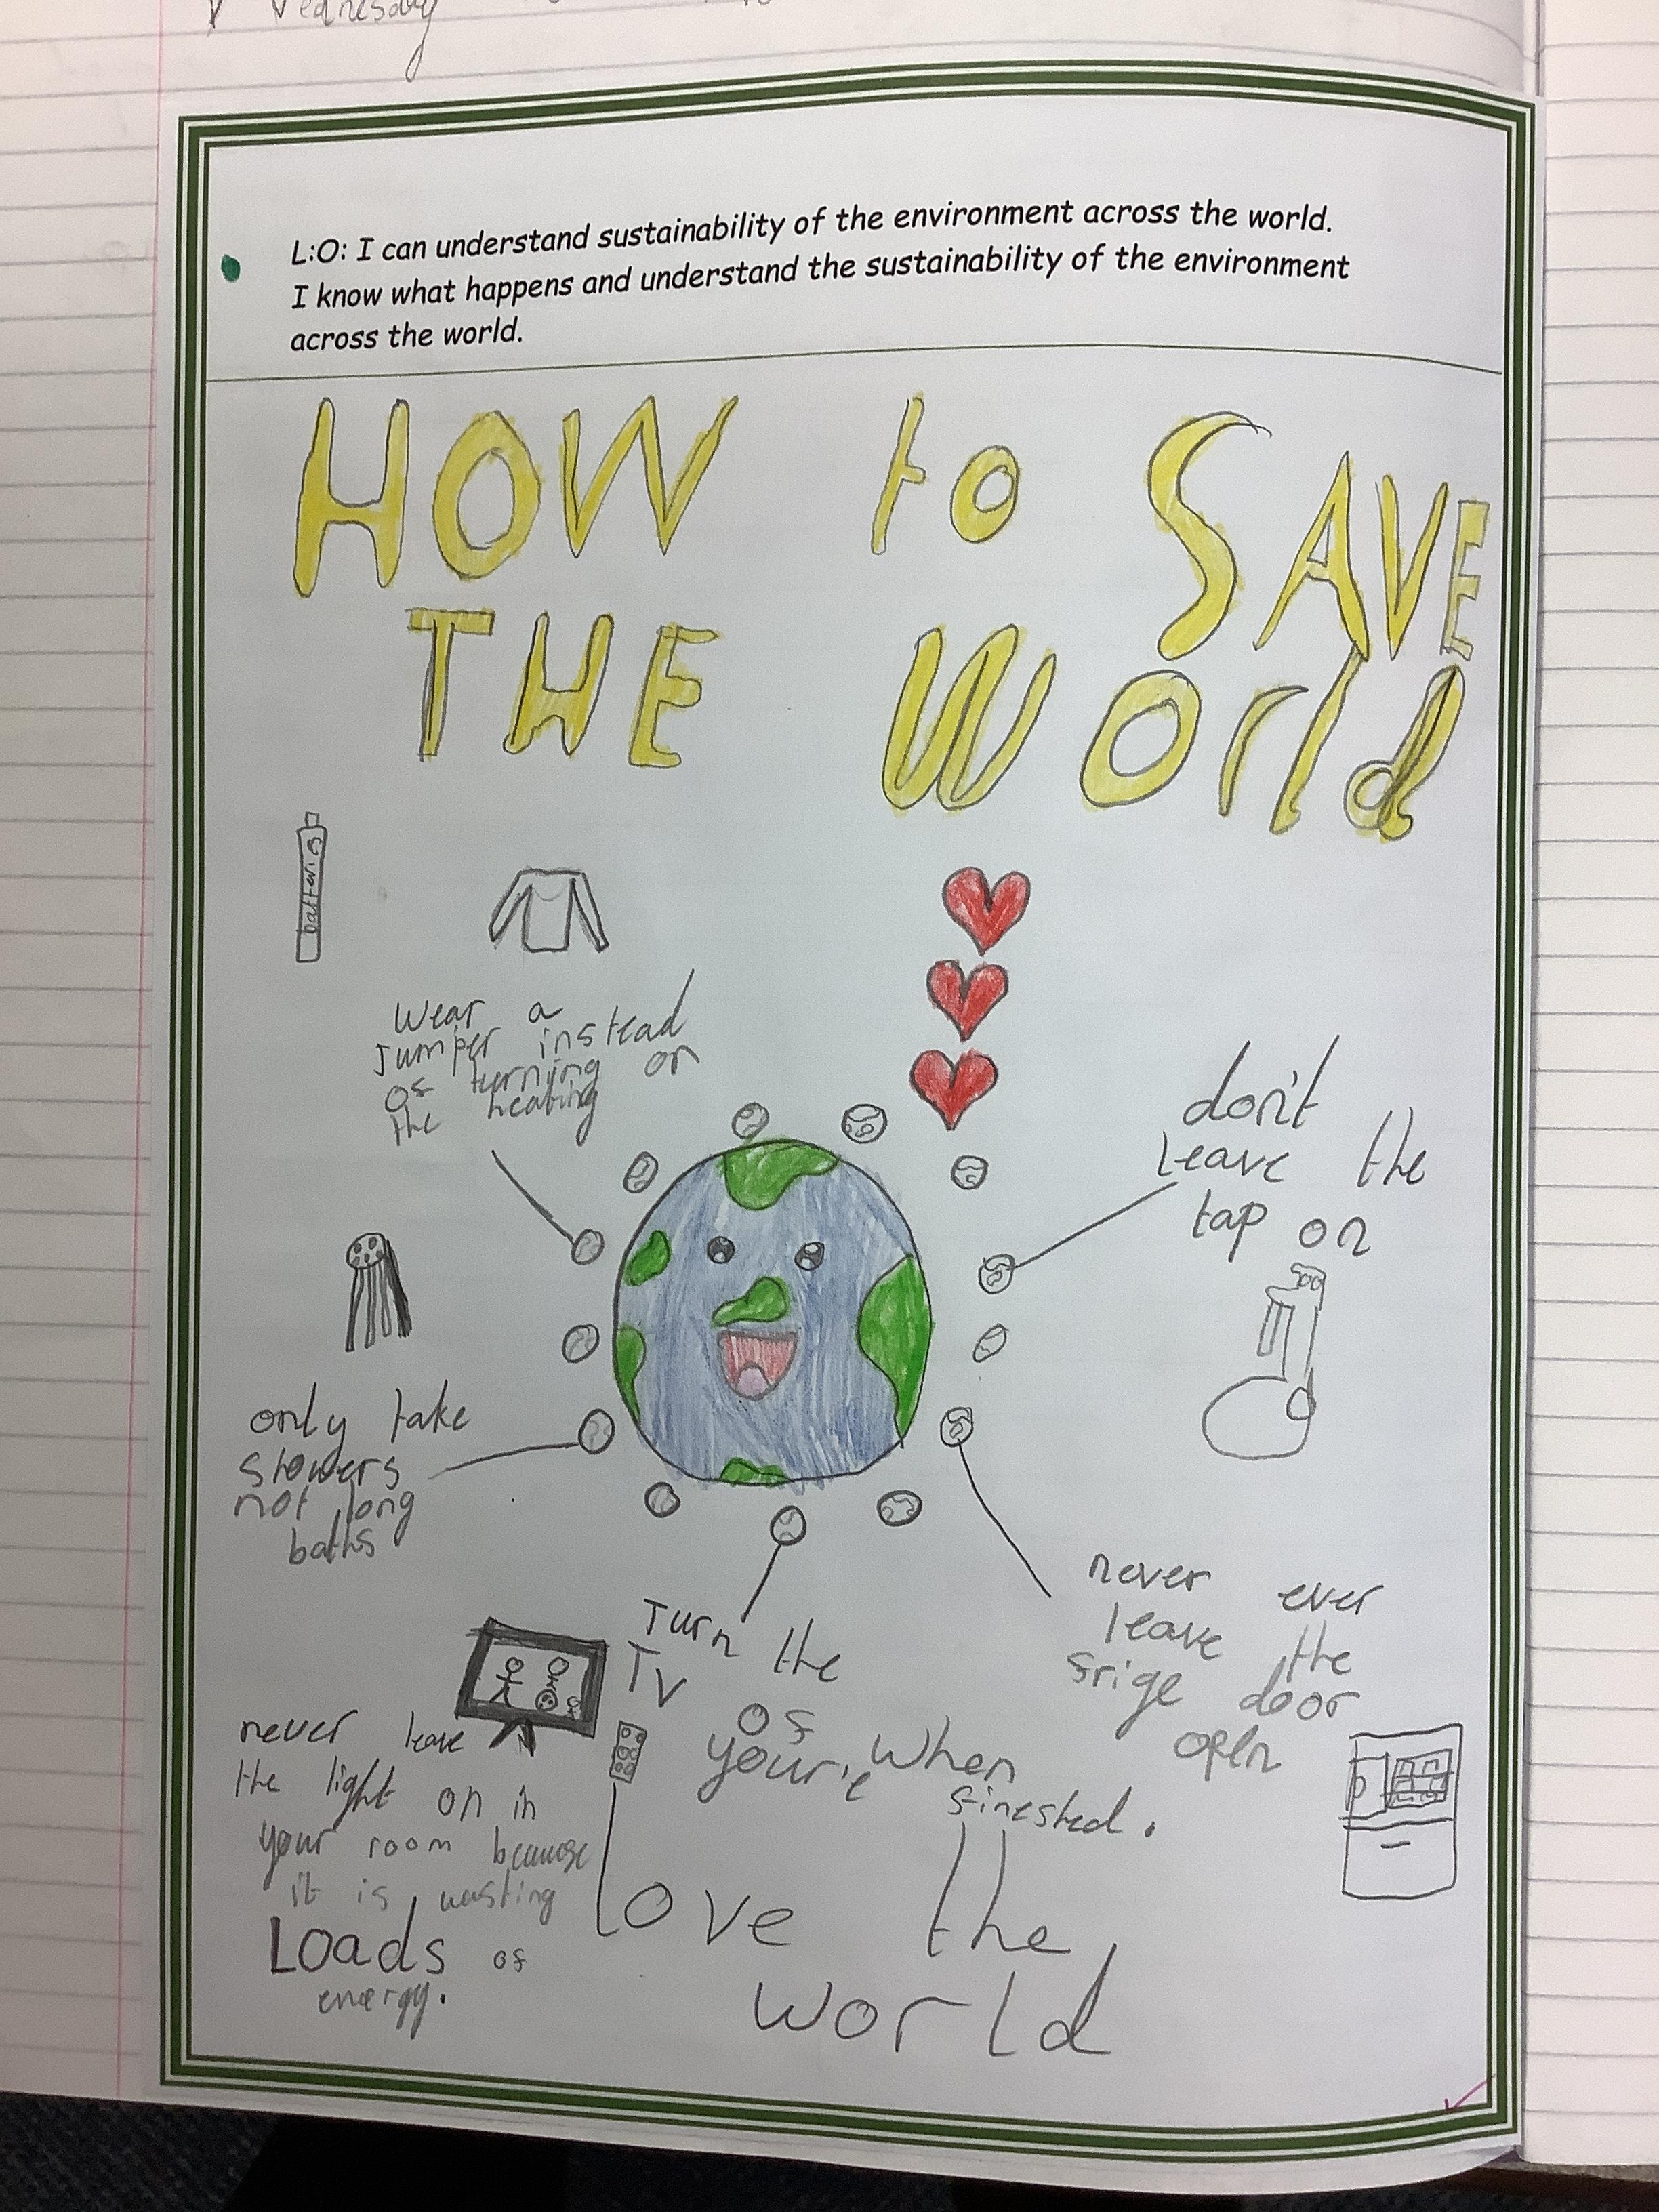 Wednesday
L:O: I can understand sustainability of the environment across the world.
I know what happens and understand the sustainability of the environment
across the world.
HOW to SAVE
THE World
batteris
Wear a
Jumper instead
of turning on
the heating
don't
Leave the
tap on
only take
showers
not long
baths
Turn the
TV
of
when
your'e
finested.
never ever
leave the
frige door
open
never leave
the light on in
your room because
it is wasting
Loads of
energy.
Love the
world